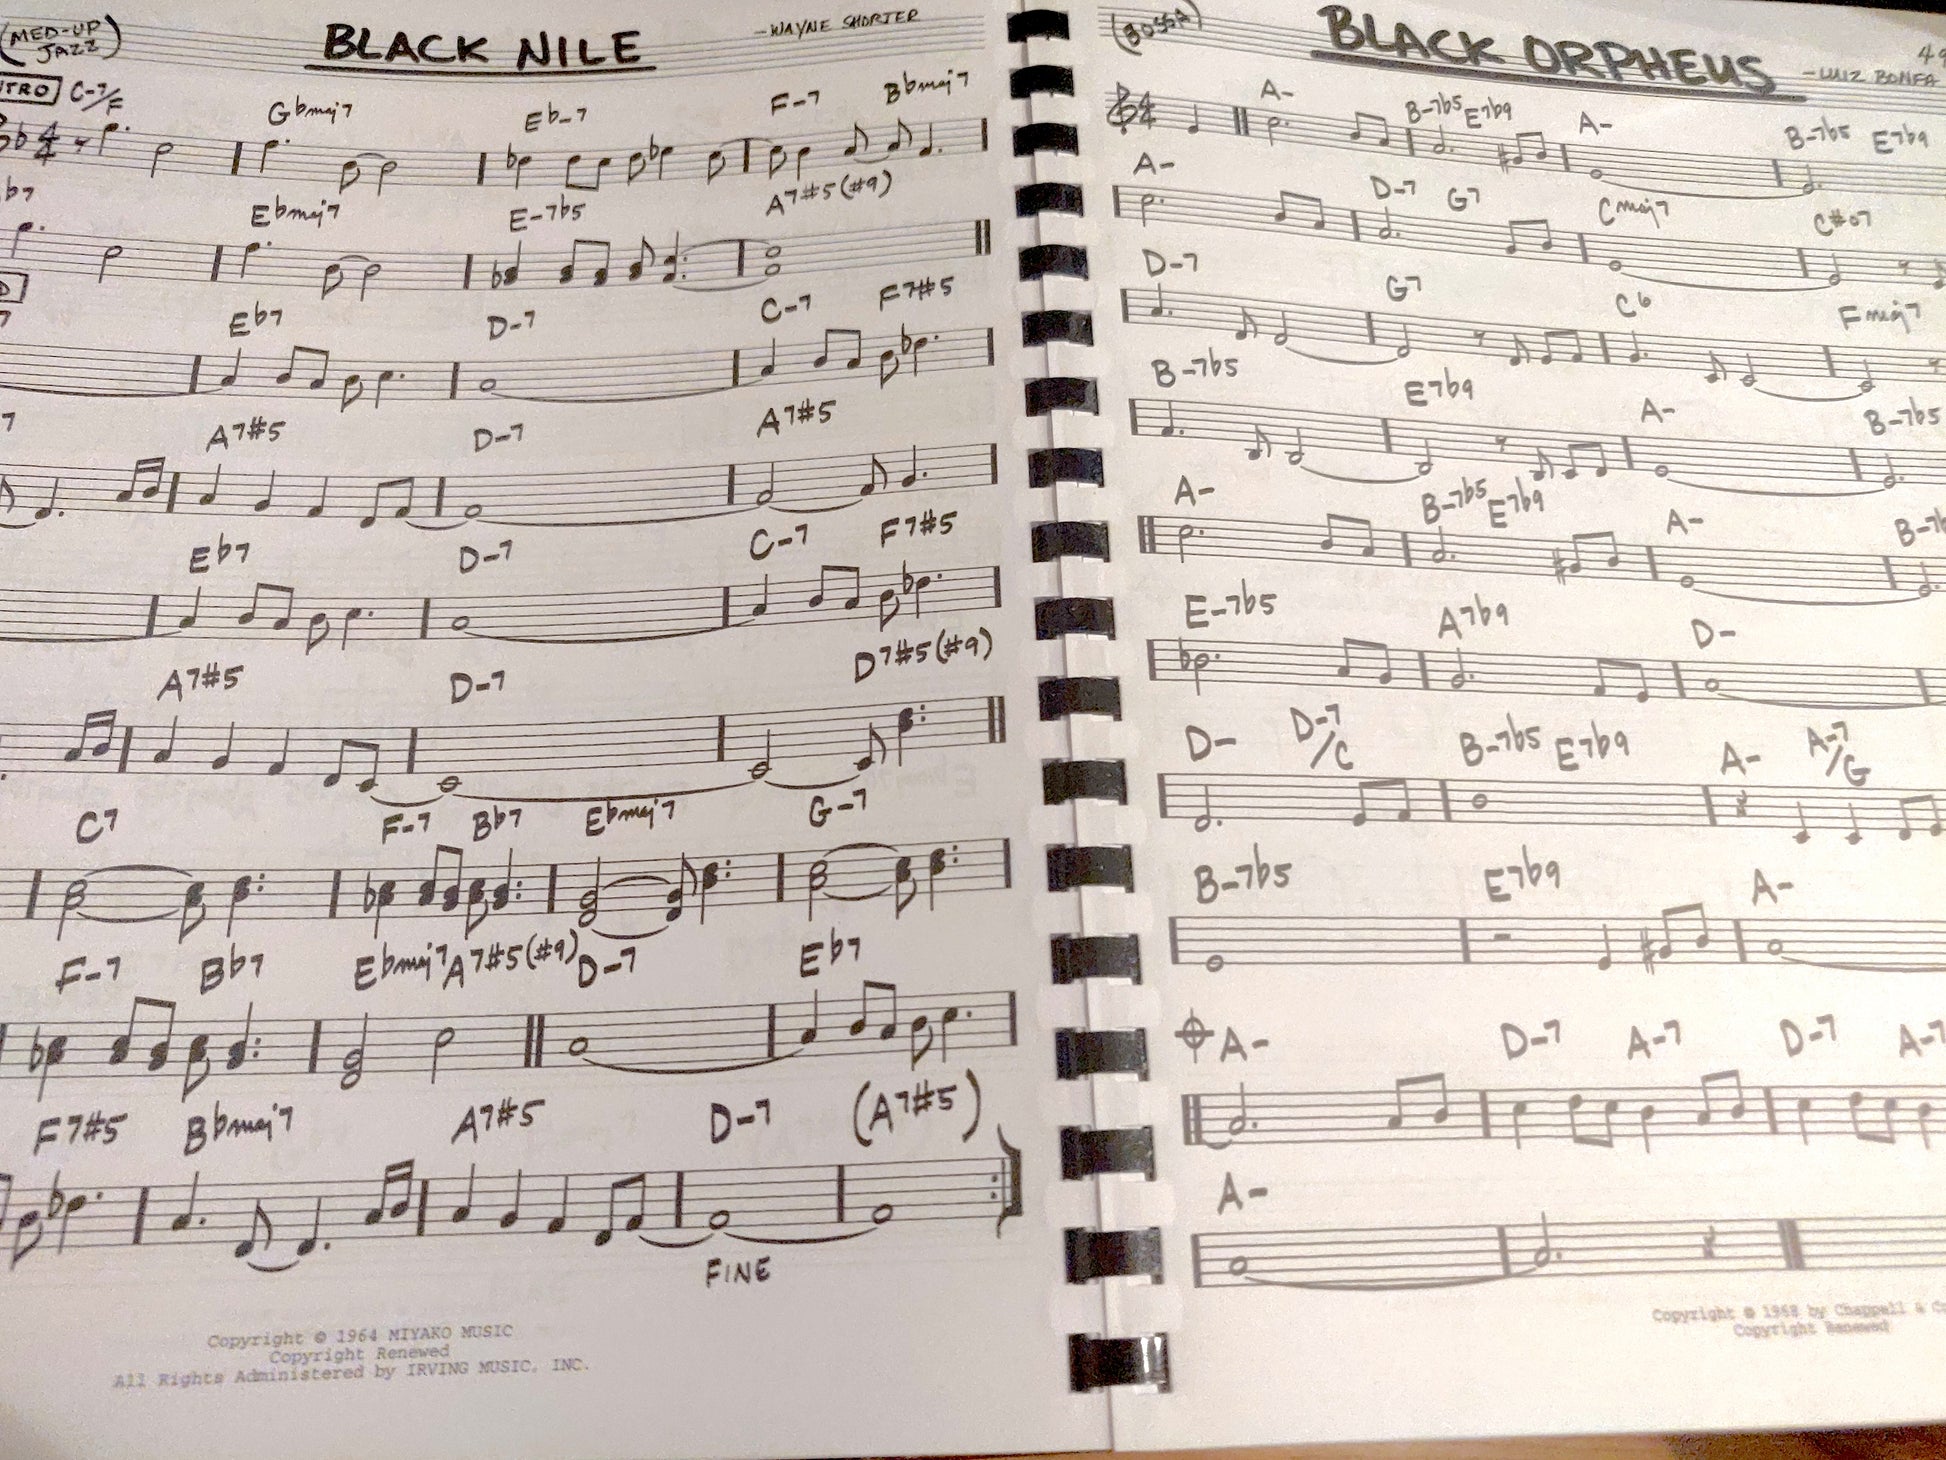 (MED-UP JAZZ)
BLACK NILE
-WAYNE SHORTER
C-7/F Gbmaj7 Eb-7 F-7 Bbmaj7
Ebmaj7 E-7b5 A7#5(#9)
Eb7 D-7 C-7 F7#5
A7#5 D-7 A7#5
Eb7 D-7 C-7 F7#5
A7#5 D-7 D7#5(#9)
C7 F-7 Bb7 Ebmaj7 G-7
F-7 Bb7 Ebmaj7 A7#5(#9) D-7 Eb7
F7#5 Bbmaj7 A7#5 D-7 (A7#5)
FINE
Copyright © 1964 MIYAKO MUSIC
Copyright Renewed
All Rights Administered by IRVING MUSIC, INC.
(BOSSA)
BLACK ORPHEUS
-LUIZ BONFA
A- B-7b5 E7b9 A- B-7b5 E7b9
A- D-7 G7 Cmaj7 C#o7
D-7 G7 C6 Fmaj7
B-7b5 E7b9 A- B-7b5
A- B-7b5 E7b9 A-
E-7b5 A7b9 D-
D- D-7/C B-7b5 E7b9 A- A-7/G
B-7b5 E7b9 A-
A- D-7 A-7 D-7 A-7
A-
Copyright © 1968 by Chappell &
Copyright Renewed